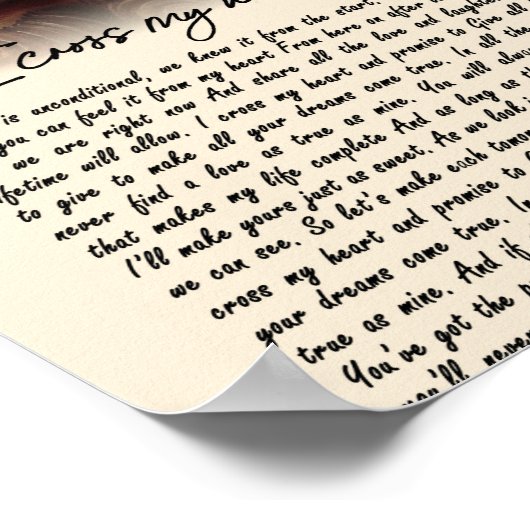 I cross My
is unconditional, we knew it from the start,
you can feel it from my heart From here on after
we are right now And share all the love and laughter
lifetime will allow. I cross my heart and promise to Give all
to give to make all your dreams come true. In all the
never find a love as true as mine. You will always
that makes my life complete And as long as
I'll make yours just as sweet. As we look
we can see. So let's make each
cross my heart and promise to
your dreams come true. In
true as mine. And if
You've got the
you'll never